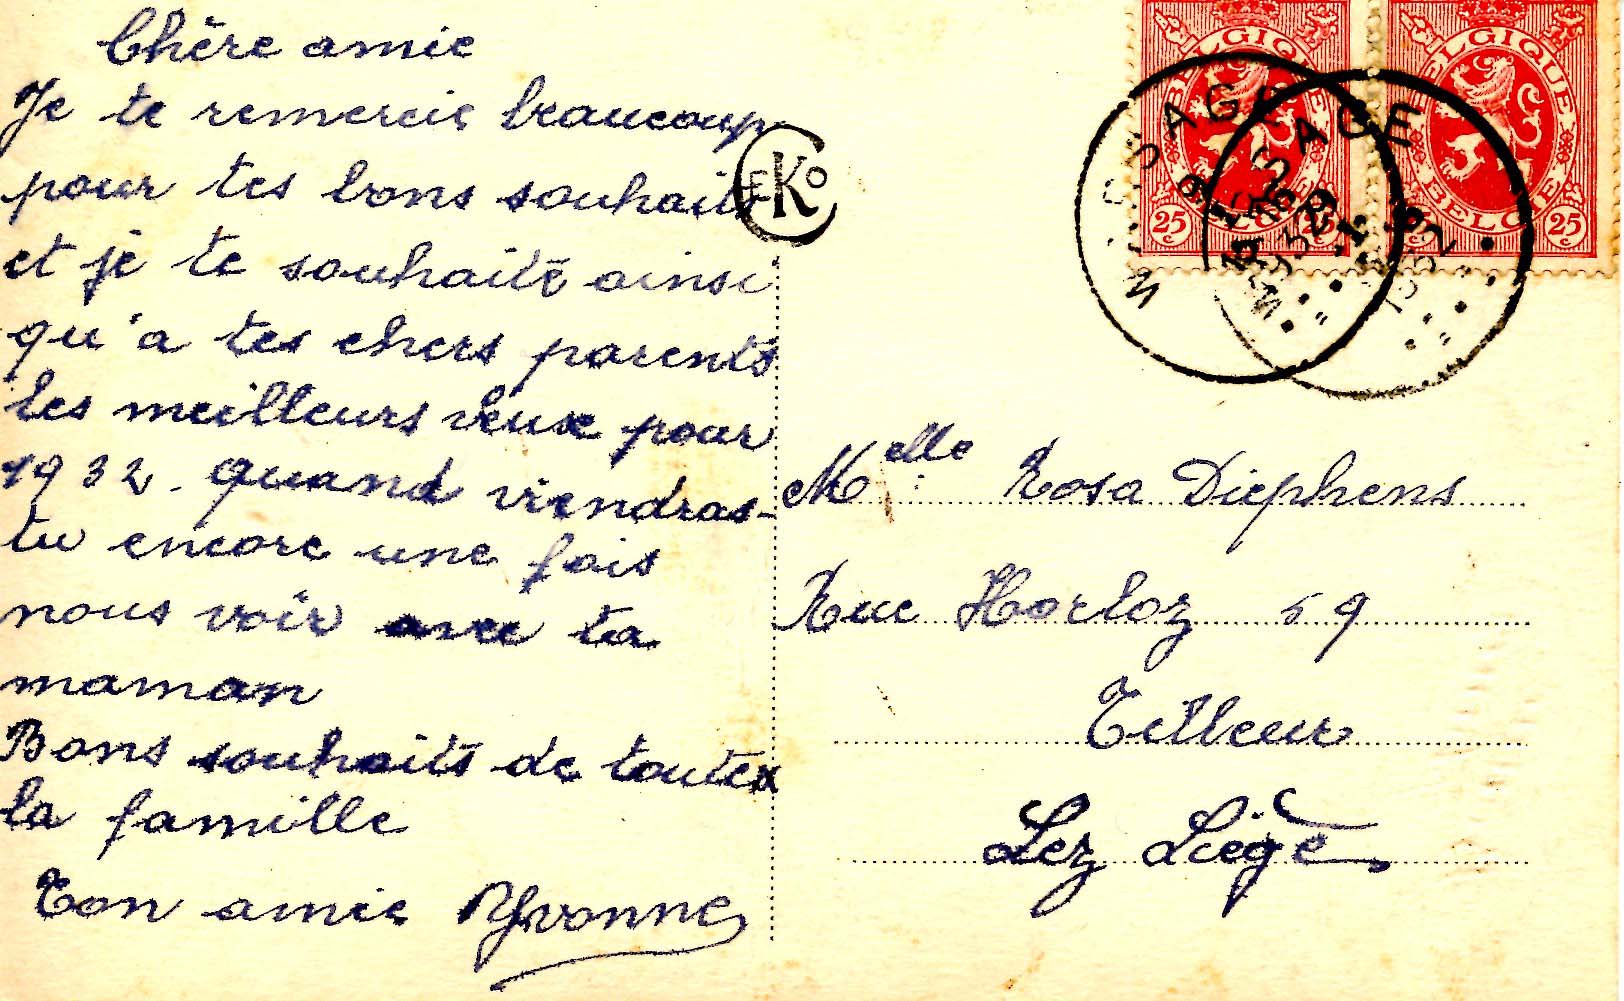 Chère amie
Je te remercie beaucoup
pour tes bons souhaits
et je te souhaite ainsi
qu'a tes chers parents
les meilleurs veux pour
1932. quand viendras-
tu encore une fois
nous voir avec ta
maman
Bons souhaits de toutes
la famille
Ton amie Yvonne
CEKO
BELGIQUE
BELGIE
25c
25c
BELGIQUE
BELGIE
25c
25c
1932
Melle Rosa Diephens
Rue Horloz 59
Tilleur
Lez Liège